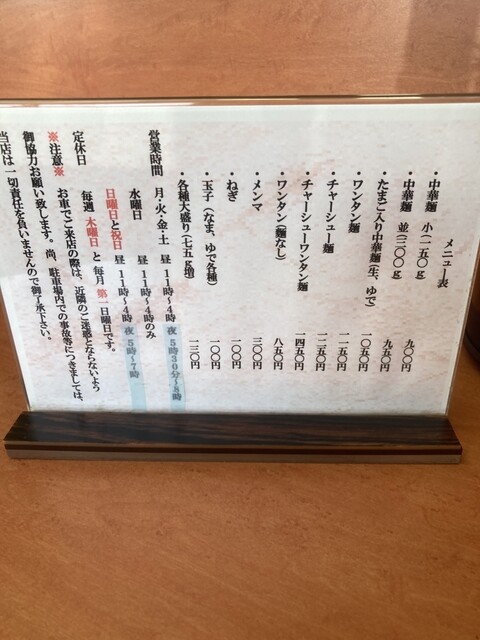 メニュー表
・中華麺 小(一五〇g) 九〇〇円
・中華麺 並(三〇〇g) 九五〇円
・たまご入り中華麺(生、ゆで) 一〇五〇円
・ワンタン麺 一一五〇円
・チャーシュー麺 一二五〇円
・チャーシューワンタン麺 一四五〇円
・ワンタン(麺なし) 八五〇円
・メンマ 三〇〇円
・ねぎ 一〇〇円
・玉子(なま、ゆで各種) 一〇〇円
・各種大盛り(七五g増) 一三〇円
営業時間 月・火・金・土 昼 11時〜4時 夜 5時30分〜8時
水曜日 昼 11時〜4時のみ
日曜日と祝日 昼 11時〜4時 夜 5時〜7時
定休日 毎週 木曜日 と 毎月 第一日曜日です。
※注意※ お車でご来店の際は、近隣のご迷惑とならないよう
御協力お願い致します。尚、駐車場内での事故等につきましては、
当店は一切責任を負いませんので御了承下さい。